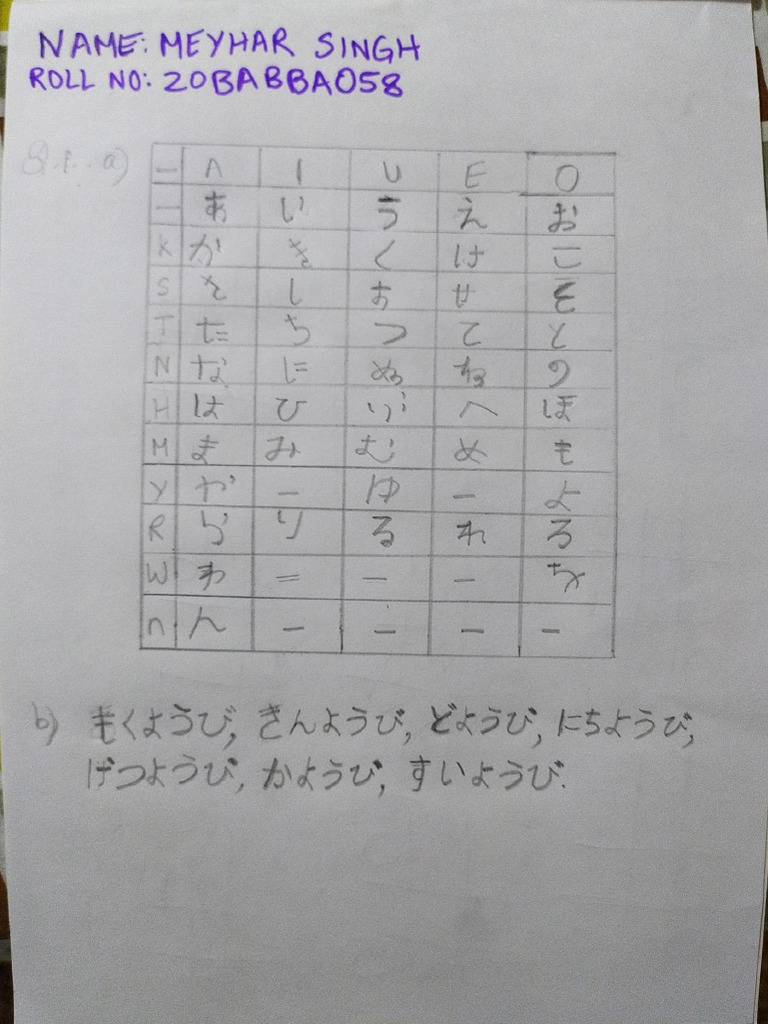 NAME: MEYHAR SINGH
ROLL NO: 20BABBA058
Q.1. a)
– A I U E O
– あ い う え お
K か き く け こ
S さ し す せ そ
T た ち つ て と
N な に ぬ ね の
H は ひ ふ へ ほ
M ま み む め も
Y や – ゆ – よ
R ら り る れ ろ
W わ = – – を
n ん – – – –
b) もくようび, きんようび, どようび, にちようび,
げつようび, かようび, すいようび.